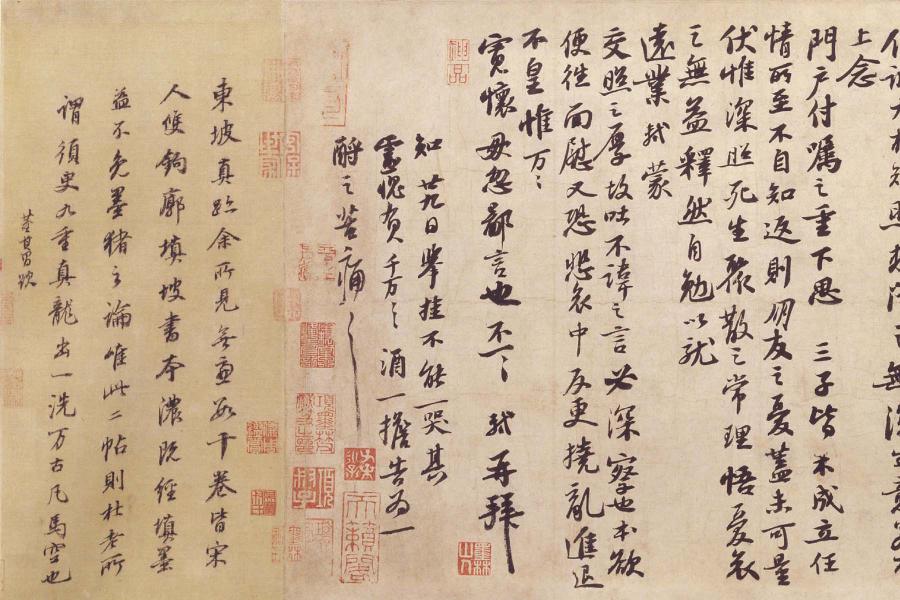 上念
門戶付囑之重下思 三子皆未成立任
情所至不自知返則朋友之憂蓋未可量
伏惟深照死生聚散之常理悟憂哀
之無益釋然自勉以就
遠業軾蒙
交照之厚故吐不諱之言必深察也本欲
便往面慰又恐悲哀中反更撓亂進退
不皇惟万〻
寬懷毋忽鄙言也不一〻 軾再拜
知廿九日舉挂不能一哭其
靈愧負千万〻酒一擔告為一
酹之苦痛〻
神品
天籟閣
東坡真跡余所見無慮數十卷皆宋
人雙鉤廓填坡書本濃既經填墨
益不免墨豬之論唯此二帖則杜老所
謂須臾九重真龍出一洗万古凡馬空也
董其昌跋